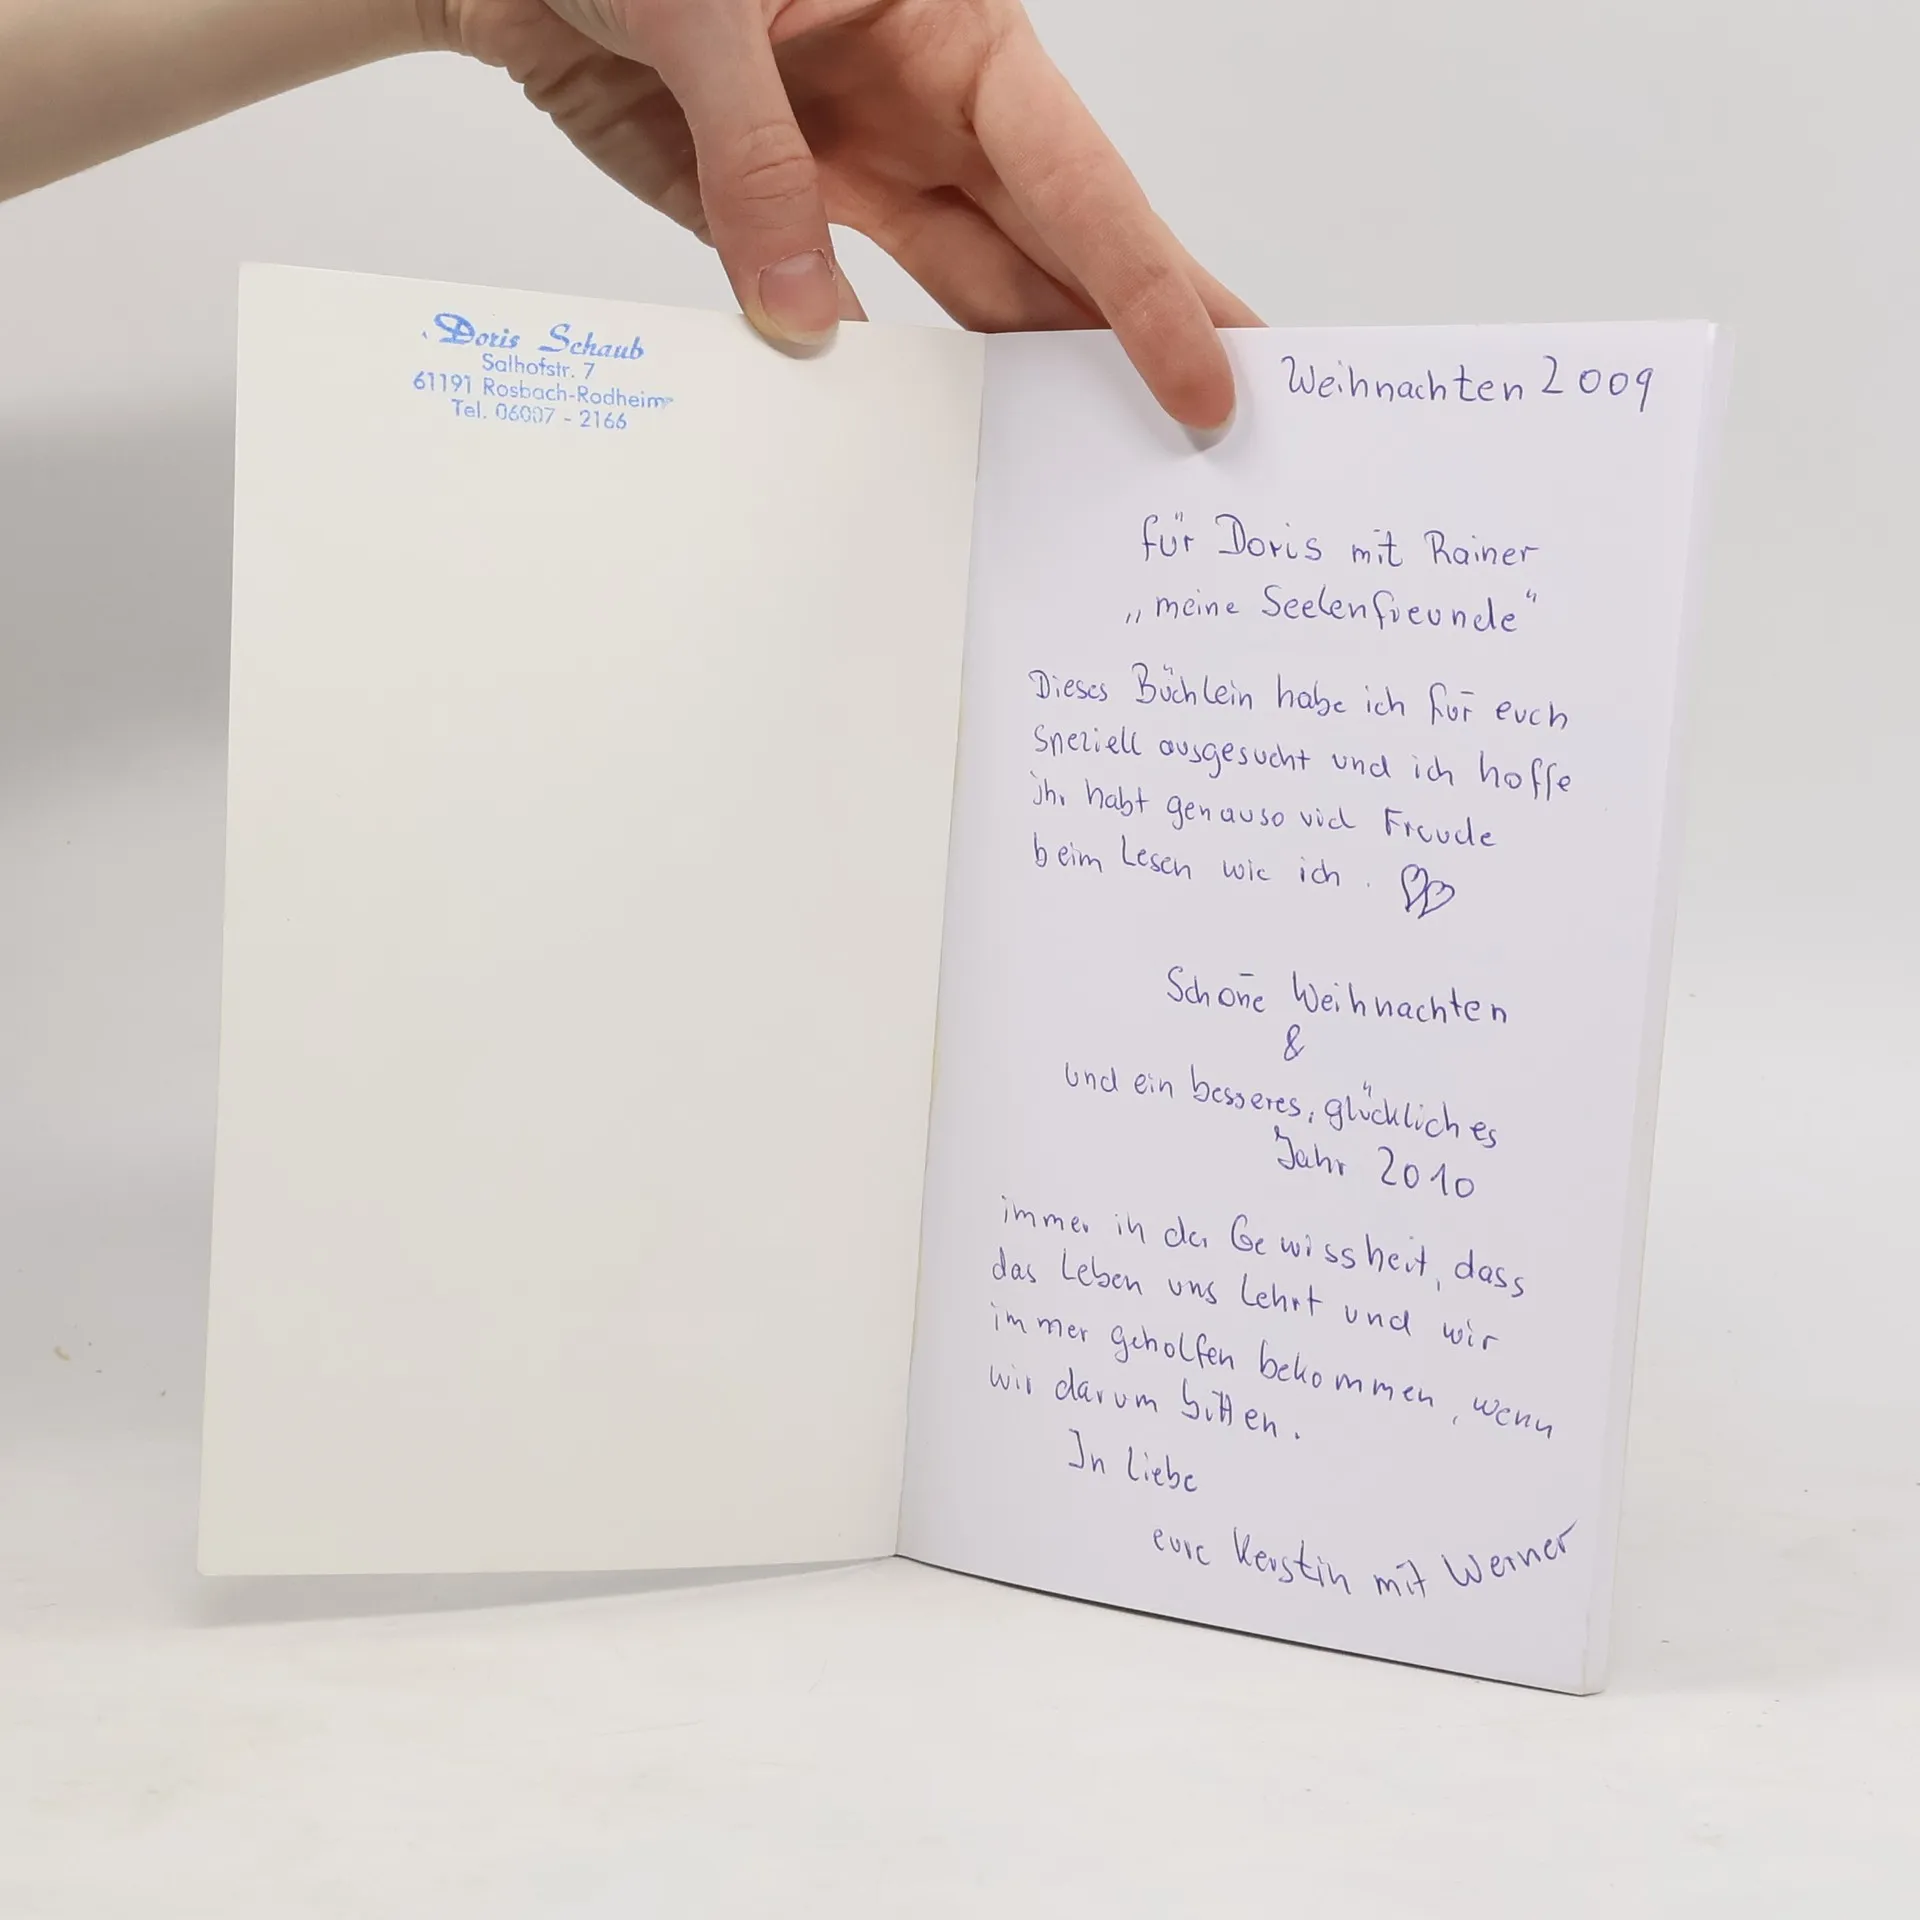 Doris Schaub
Salhofstr. 7
61191 Rosbach-Rodheim
Tel. 06007 - 2166
Weihnachten 2009
für Doris mit Rainer
„meine Seelenfreunde“
Dieses Büchlein habe ich für euch
speziell ausgesucht und ich hoffe
ihr habt genauso viel Freude
beim Lesen wie ich.
Schöne Weihnachten
&
und ein besseres, glückliches
Jahr 2010
immer in der Gewissheit, dass
das Leben uns lehrt und wir
immer geholfen bekommen, wenn
wir darum bitten.
In Liebe
eure Kerstin mit Werner